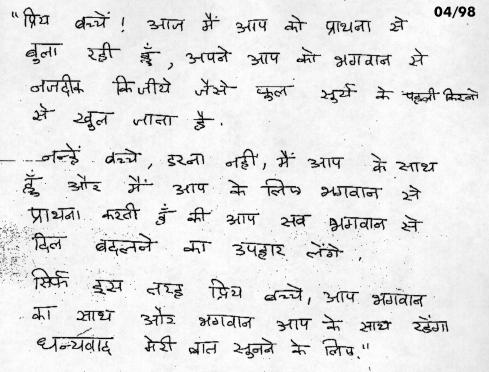 04/98
"प्रिय बच्चें! आज मैं आप को प्राथना से
बुला रही हुँ, अपने आप को भगवान से
नजदीक किजीये जैसे फुल सुर्य के पहली किरनो
से खुल जाता है.
नन्हें बच्चे, डरना नही, मैं आप के साथ
हुँ और मैं आप के लिए भगवान से
प्राथना करती हुँ की आप सब भगवान से
दिल बदलने का उपहार लेंगे.
सिर्फ इस तरह प्रिय बच्चे, आप भगवान
का साथ और भगवान आप के साथ रहेंगा
धन्यवाद मेरी बात सुनने के लिए."